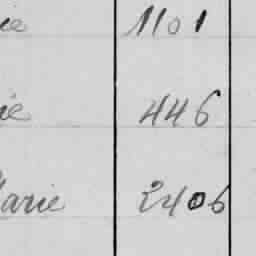 ie 1101
ie 446
Marie 2406